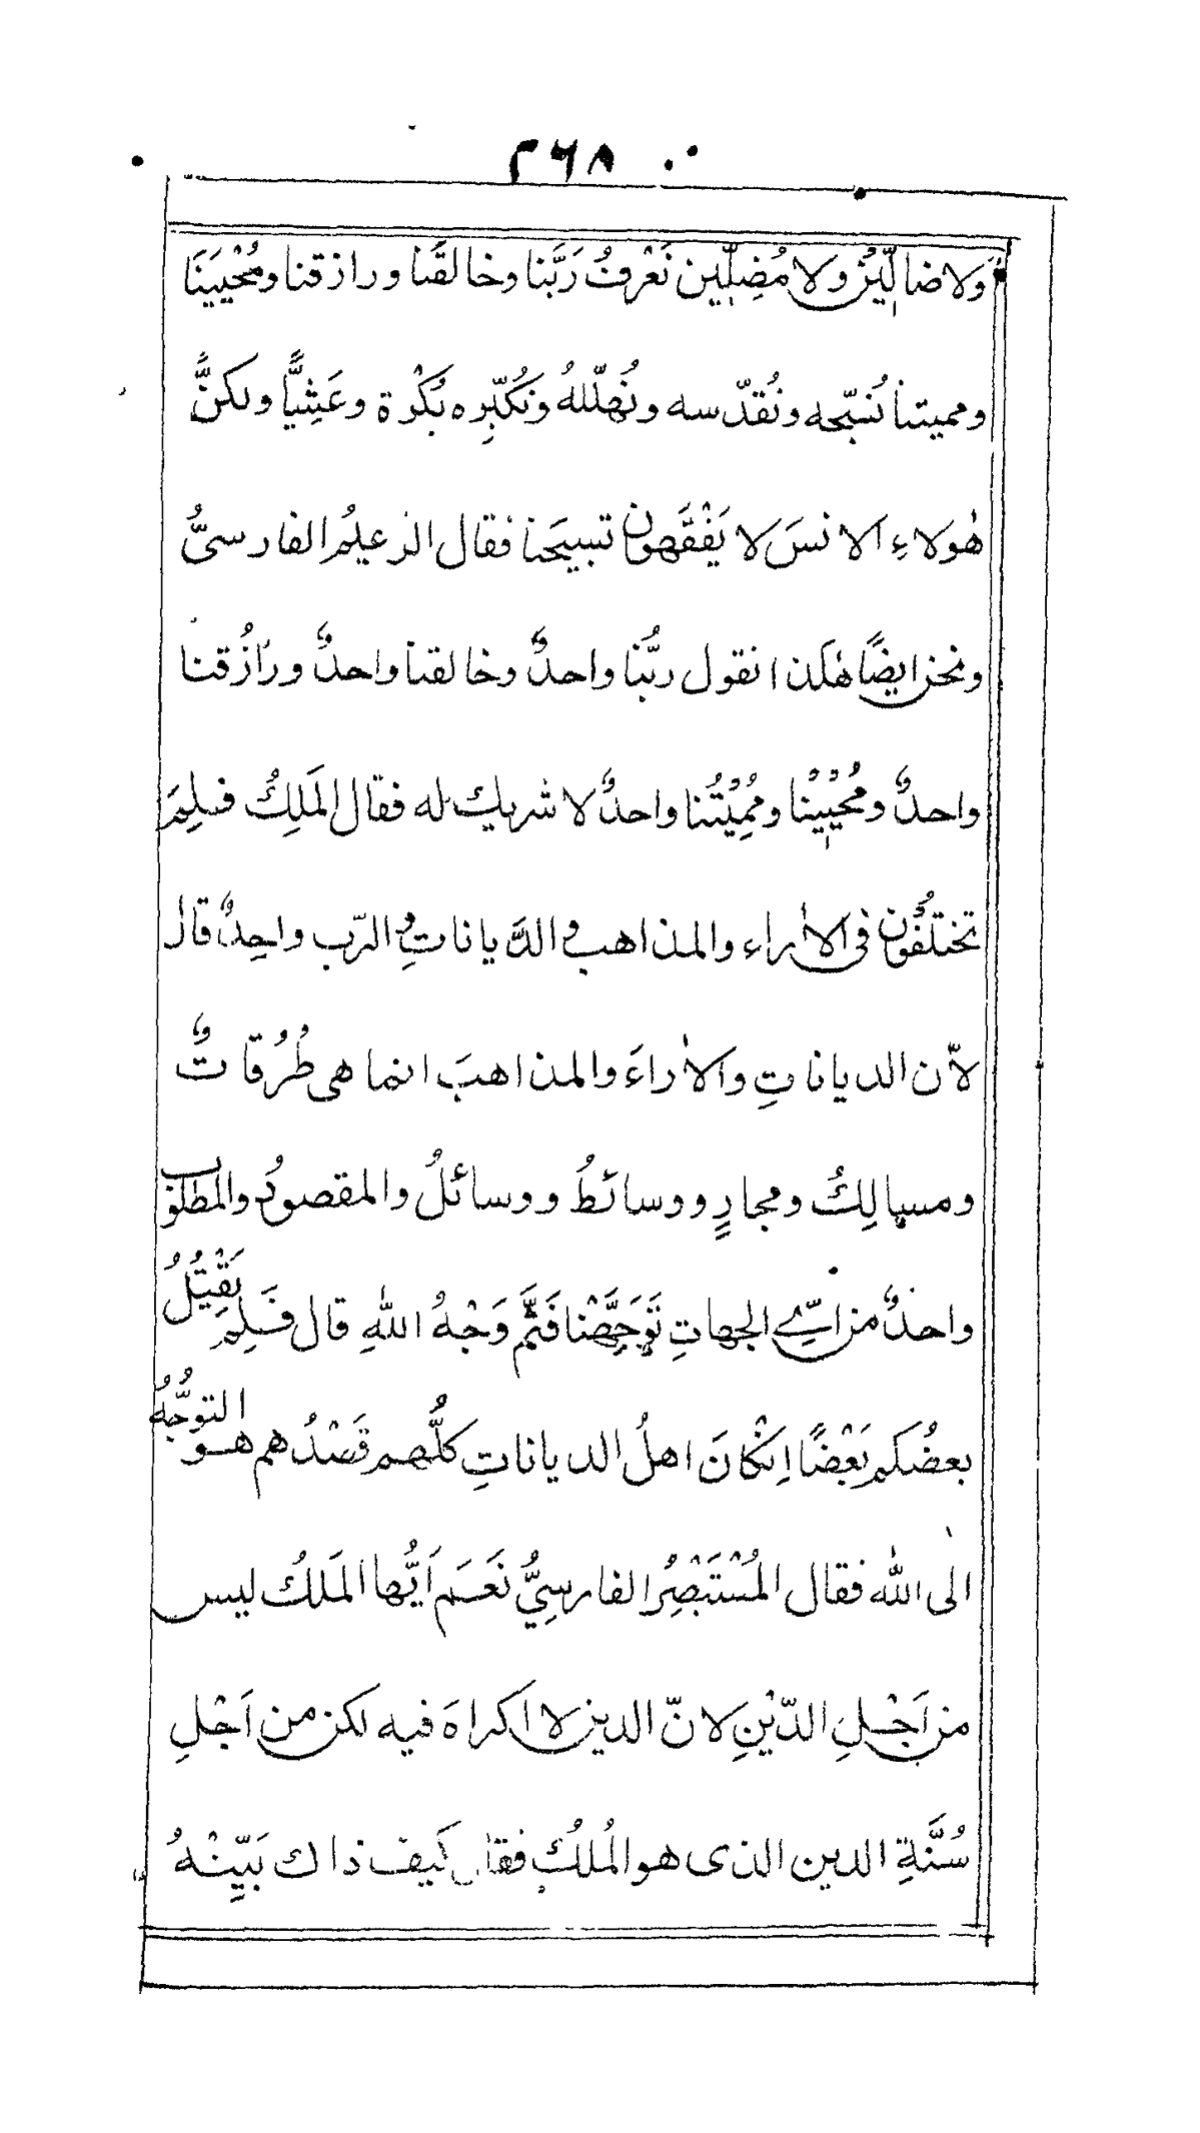 ۲۶۸
ولا ضالّين ولا مُضِلّين نَعْرِفُ رَبَّنا وخالقَنا ورازقنا ومُحْيِيَنَا
ومميتنا نُسَبّحه ونُقدّسه ونُهلّلهُ ونُكبّره بُكْرة وعَشِيًّا ولكنَّ
هٰولاءِ الانسَ لا يَفْقَهون تسبيحَنا فقال الزعيمُ الفارسىُّ
ونحن ايضًا هٰكذا نقول ربُّنا واحدٌ وخالقنا واحدٌ ورازُقنا
واحدٌ ومُحْيِيْنُا ومُمِيْتُنا واحدٌ لا شريك له فقال المَلِكُ فلِمَ
تختلفُون فى الأراء والمذاهب والدَّياناتِ والرّب واحِدٌ قال
لاّن الدياناتِ والأراءَ والمذاهبَ انما هى طُرُقاتٌ
ومسالِكُ ومجارٍ ووسائطُ ووسائلُ والمقصودُ والمطلوب
واحدٌ من اىّ الجهاتِ تَوَجَّهْنا فَثَمَّ وَجْهُ اللهِ قال فَلِمَ يَقْتِلُ
بعضُكم بَعْضًا اِنْ كَانَ اهلُ الدياناتِ كلُّهم قَصْدُهم هو التوجُّهُ
الٰى الله فقال المُسْتَبْصِرُ الفارسِيُّ نَعَم اَيُّها المَلكُ ليس
من اَجْلِ الدّيْنِ لانّ الدين لا اكراهَ فيه لكن من اَجْلِ
سُنَّةِ الدين الذى هو المُلكُ فقال كَيف ذاك بَيِّنْهُ